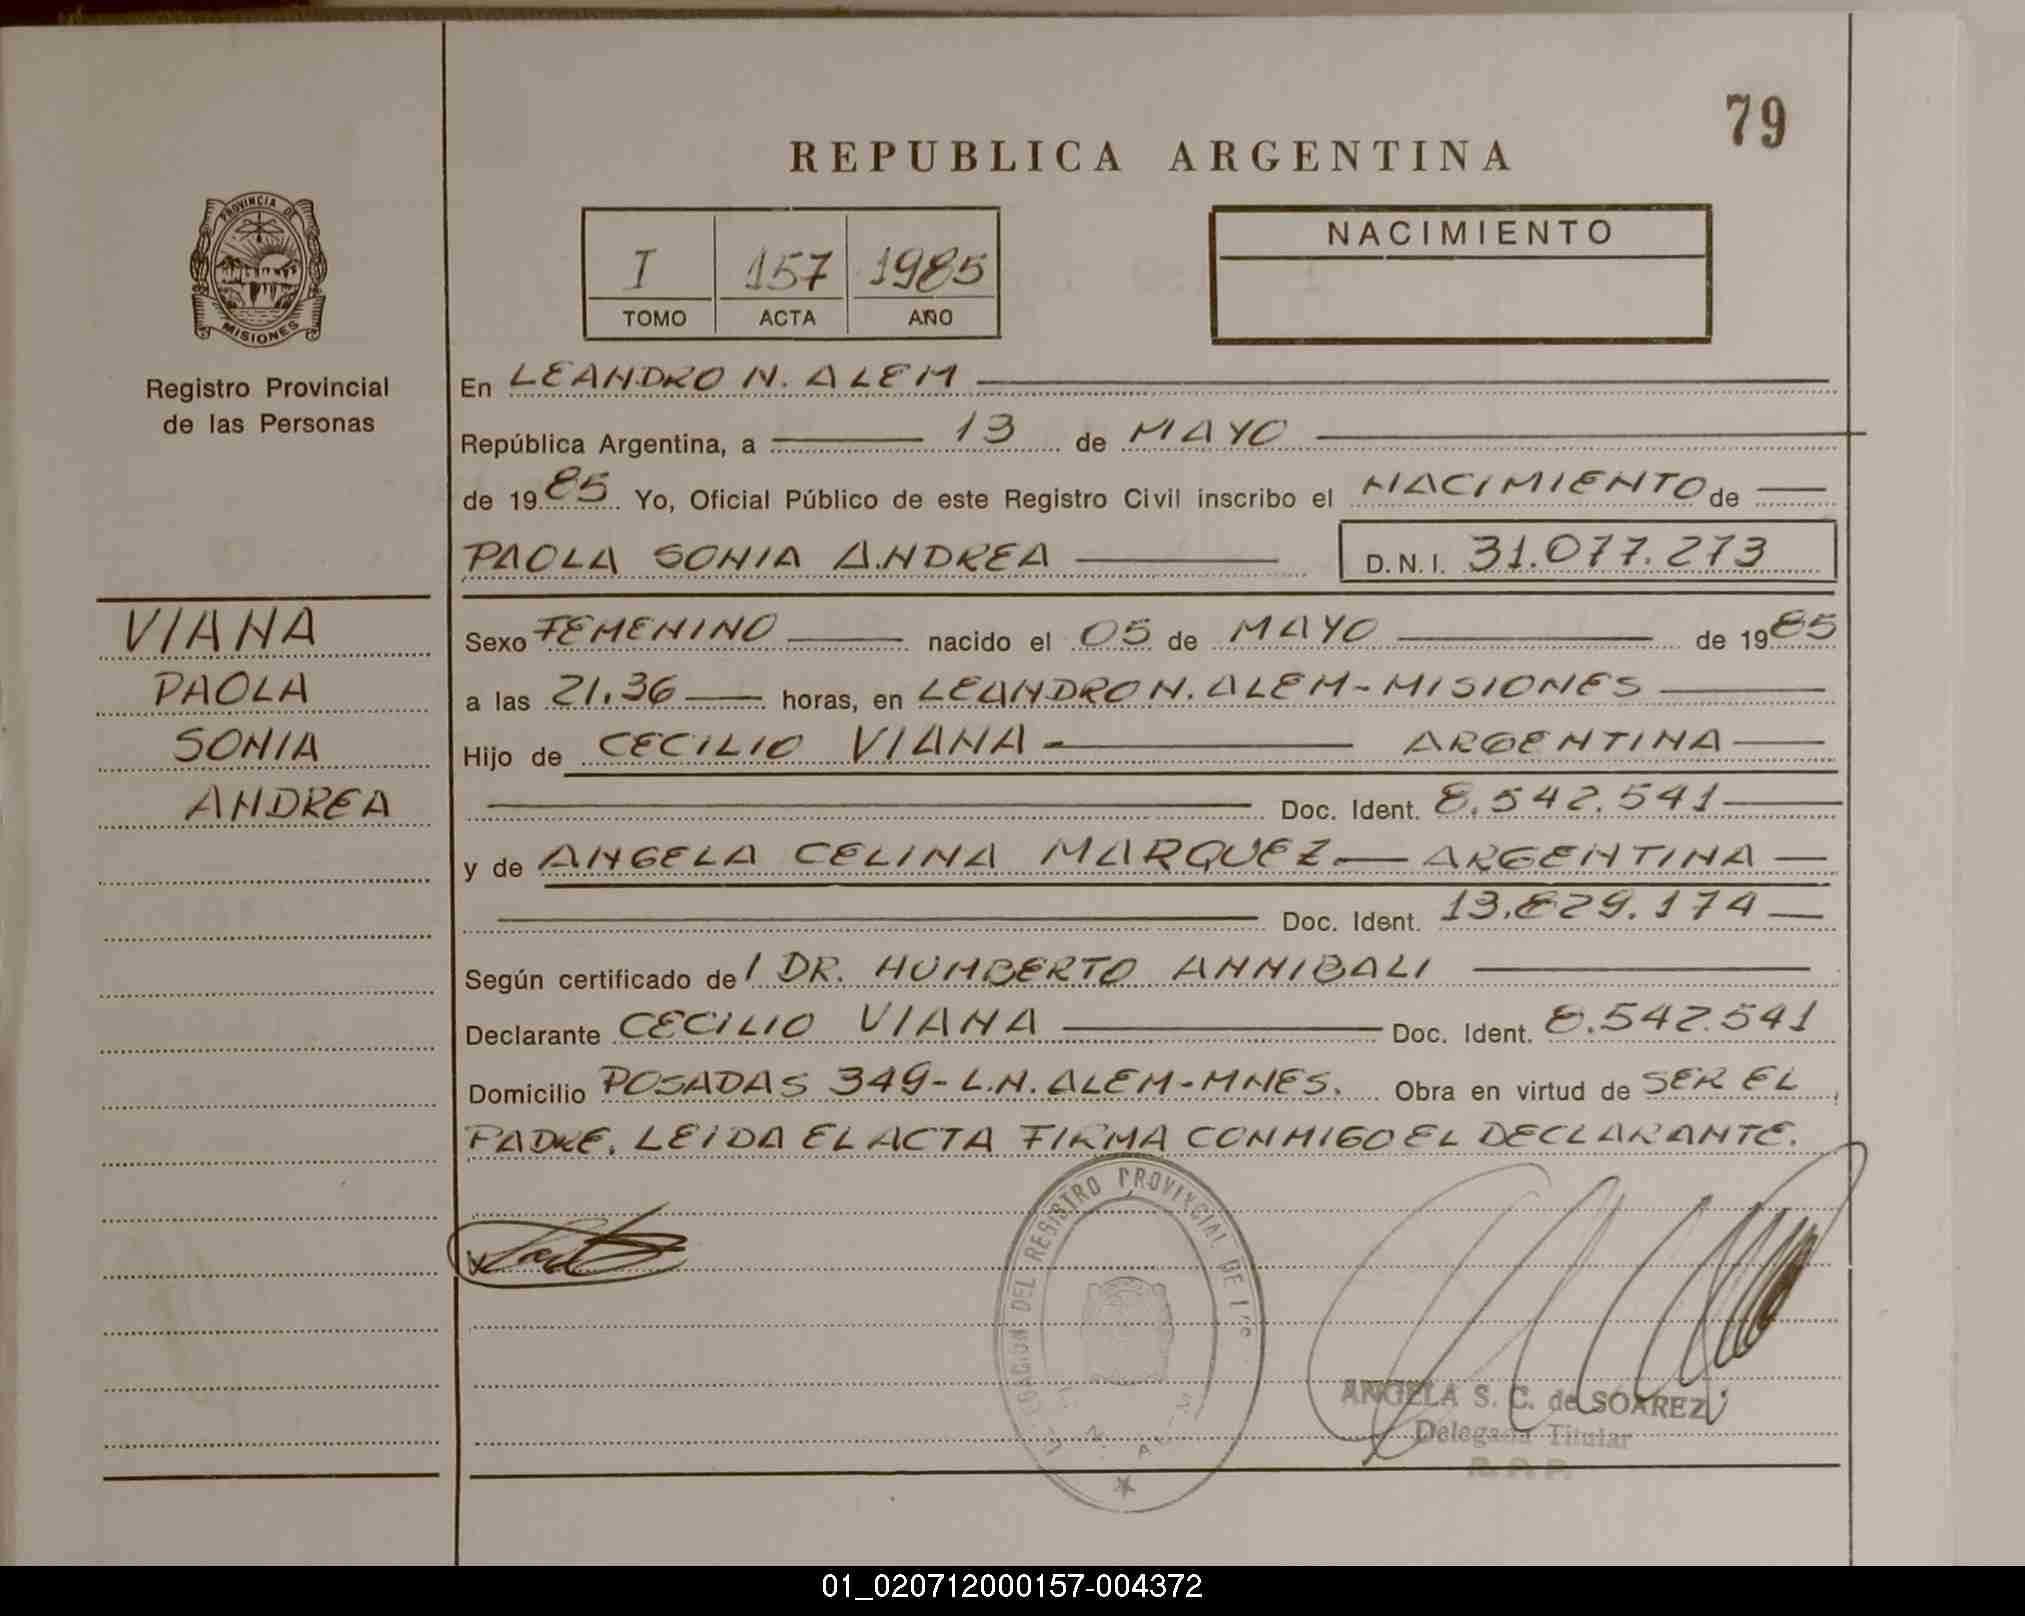 79
REPUBLICA ARGENTINA
PROVINCIA DE
MISIONES
Registro Provincial
de las Personas
I 157 1985
TOMO ACTA AÑO
NACIMIENTO
En LEANDRO N. ALEM
República Argentina, a 13 de MAYO
de 1985 Yo, Oficial Público de este Registro Civil inscribo el NACIMIENTO de
PAOLA SONIA ANDREA D.N.I. 31.077.273
VIANA
PAOLA
SONIA
ANDREA
Sexo FEMENINO nacido el 05 de MAYO de 1985
a las 21.36 horas, en LEANDRO N. ALEM-MISIONES
Hijo de CECILIO VIANA ARGENTINA
Doc. Ident. 8.542.541
y de ANGELA CELINA MARQUEZ ARGENTINA
Doc. Ident. 13.829.174
Según certificado de DR. HUMBERTO ANNIBALI
Declarante CECILIO VIANA Doc. Ident. 8.542.541
Domicilio POSADAS 349-L.N.ALEM-MNES. Obra en virtud de SER EL
PADRE. LEIDA EL ACTA FIRMA CONMIGO EL DECLARANTE.
DEL REGISTRO PROVINCIAL DE
ANGELA S. C. de SOAREZ
Delegada Titular
R. P. P.
01_020712000157-004372